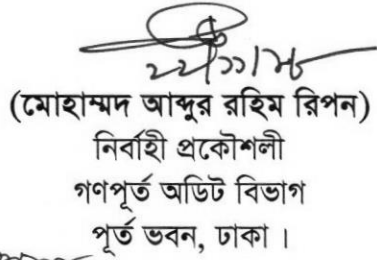 (মোহাম্মদ আব্দুর রহিম রিপন)
নির্বাহী প্রকৌশলী
গণপূর্ত অডিট বিভাগ
পূর্ত ভবন, ঢাকা ।